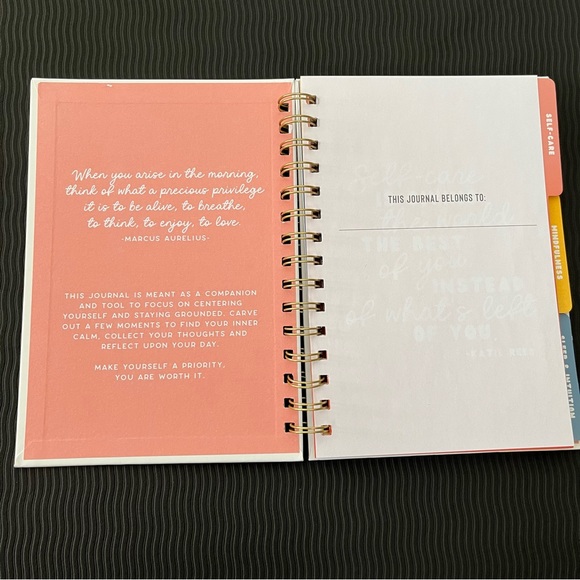 When you arise in the morning,
think of what a precious privilege
it is to be alive, to breathe,
to think, to enjoy, to love.
-MARCUS AURELIUS-
THIS JOURNAL IS MEANT AS A COMPANION
AND TOOL TO FOCUS ON CENTERING
YOURSELF AND STAYING GROUNDED. CARVE
OUT A FEW MOMENTS TO FIND YOUR INNER
CALM, COLLECT YOUR THOUGHTS AND
REFLECT UPON YOUR DAY.
MAKE YOURSELF A PRIORITY,
YOU ARE WORTH IT.
THIS JOURNAL BELONGS TO:
THE BEST
of you
INSTEAD
of what's left
OF YOU
SELF-CARE
MINDFULNESS
SLEEP & NUTRITION